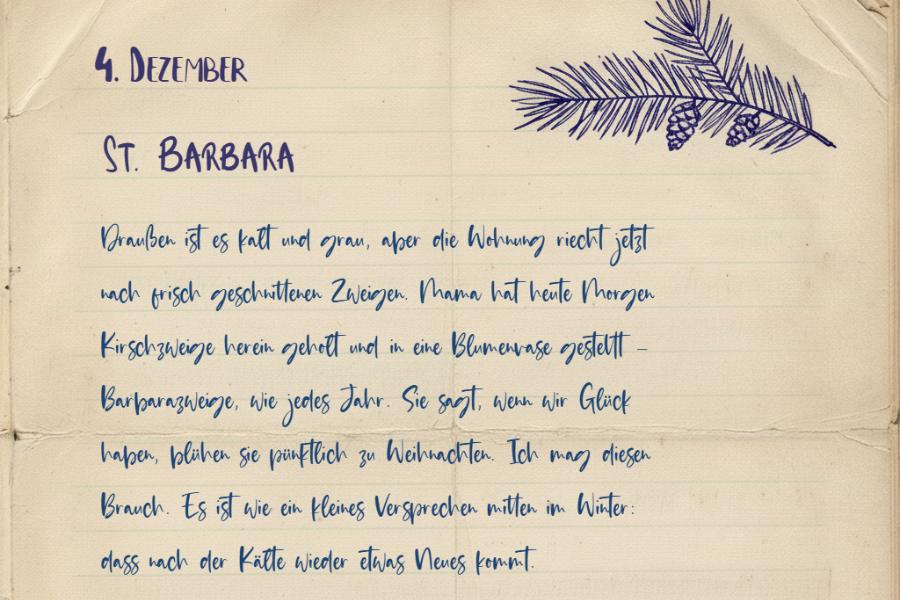 4. DEZEMBER
ST. BARBARA
Draußen ist es kalt und grau, aber die Wohnung riecht jetzt
nach frisch geschnittenen Zweigen. Mama hat heute Morgen
Kirschzweige herein geholt und in eine Blumenvase gestellt –
Barbarazweige, wie jedes Jahr. Sie sagt, wenn wir Glück
haben, blühen sie pünktlich zu Weihnachten. Ich mag diesen
Brauch. Es ist wie ein kleines Versprechen mitten im Winter:
dass nach der Kälte wieder etwas Neues kommt.